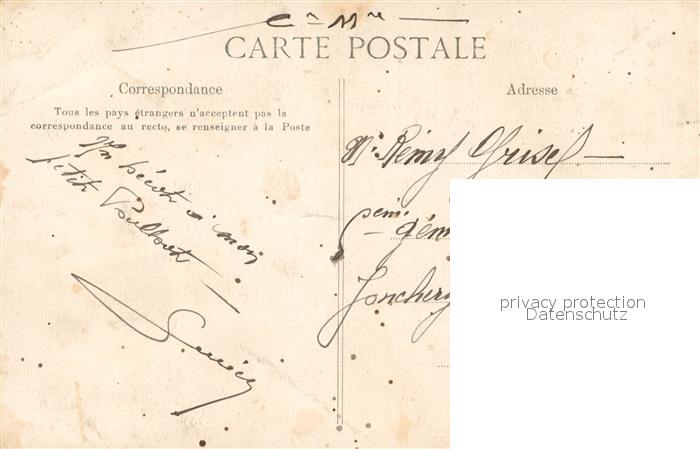 Cⁿ Mʳᵉ
CARTE POSTALE
Correspondance
Tous les pays étrangers n'acceptent pas la
correspondance au recto, se renseigner à la Poste
Un bécot à mon
petit Poulbot
Adresse
Mʳ Rémy Grisel
6ᵉᵐᵉ génie
Jonchery
privacy protection
Datenschutz